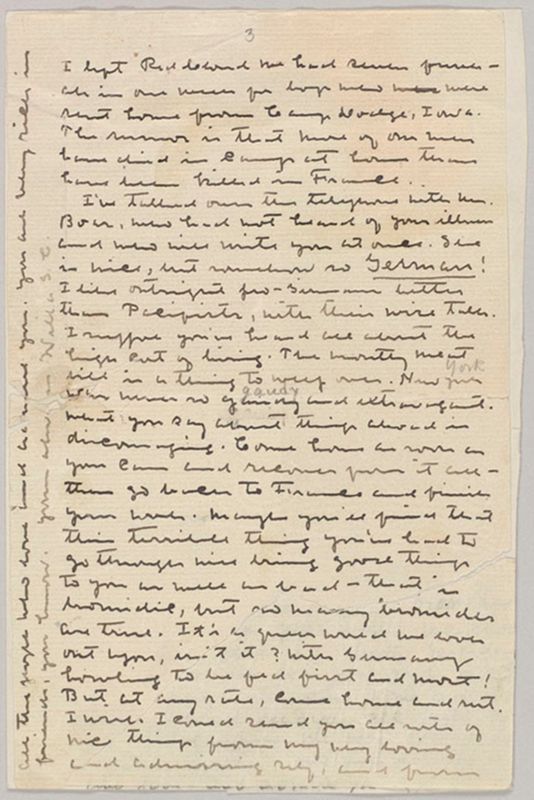 3
I left Red Cloud we had seven funer-
als in one week for boys who were
sent home from Camp Dodge, Iowa.
The rumor is that more of our men
have died in camp at home than
have been killed in France..
I've talked over the telephone with Mrs.
Boas, who had not heard of your illness
and who will write you at once. She
is nice, but somehow so German!
I like outright pro-Germans better
than Pacifists, with their wise talk.
I suppose you've heard all about the
high cost of living. The monthly meat
York
bill is a thing to weep over. New York
gaudy
was never so gaudy and extravagant.
What you say about things abroad is
discouraging. Come home as soon as
you can and recover from it all—
then go back to France and finish
your work. Maybe you'll find that
this terrible thing you've had to
go through will bring good things
to you as well as bad—that is
bromidic, but so many bromides
are true. It's a queer world we
out upon, isn't it? With Germany
howling to be fed first and most!
But at any rate, come home and rest.
I wish I could send you all sorts of
nice things from my very loving
and admiring self, and from
all the people who love and admire you. You are very rich in
friends, you know. Yours always Willa S. C.